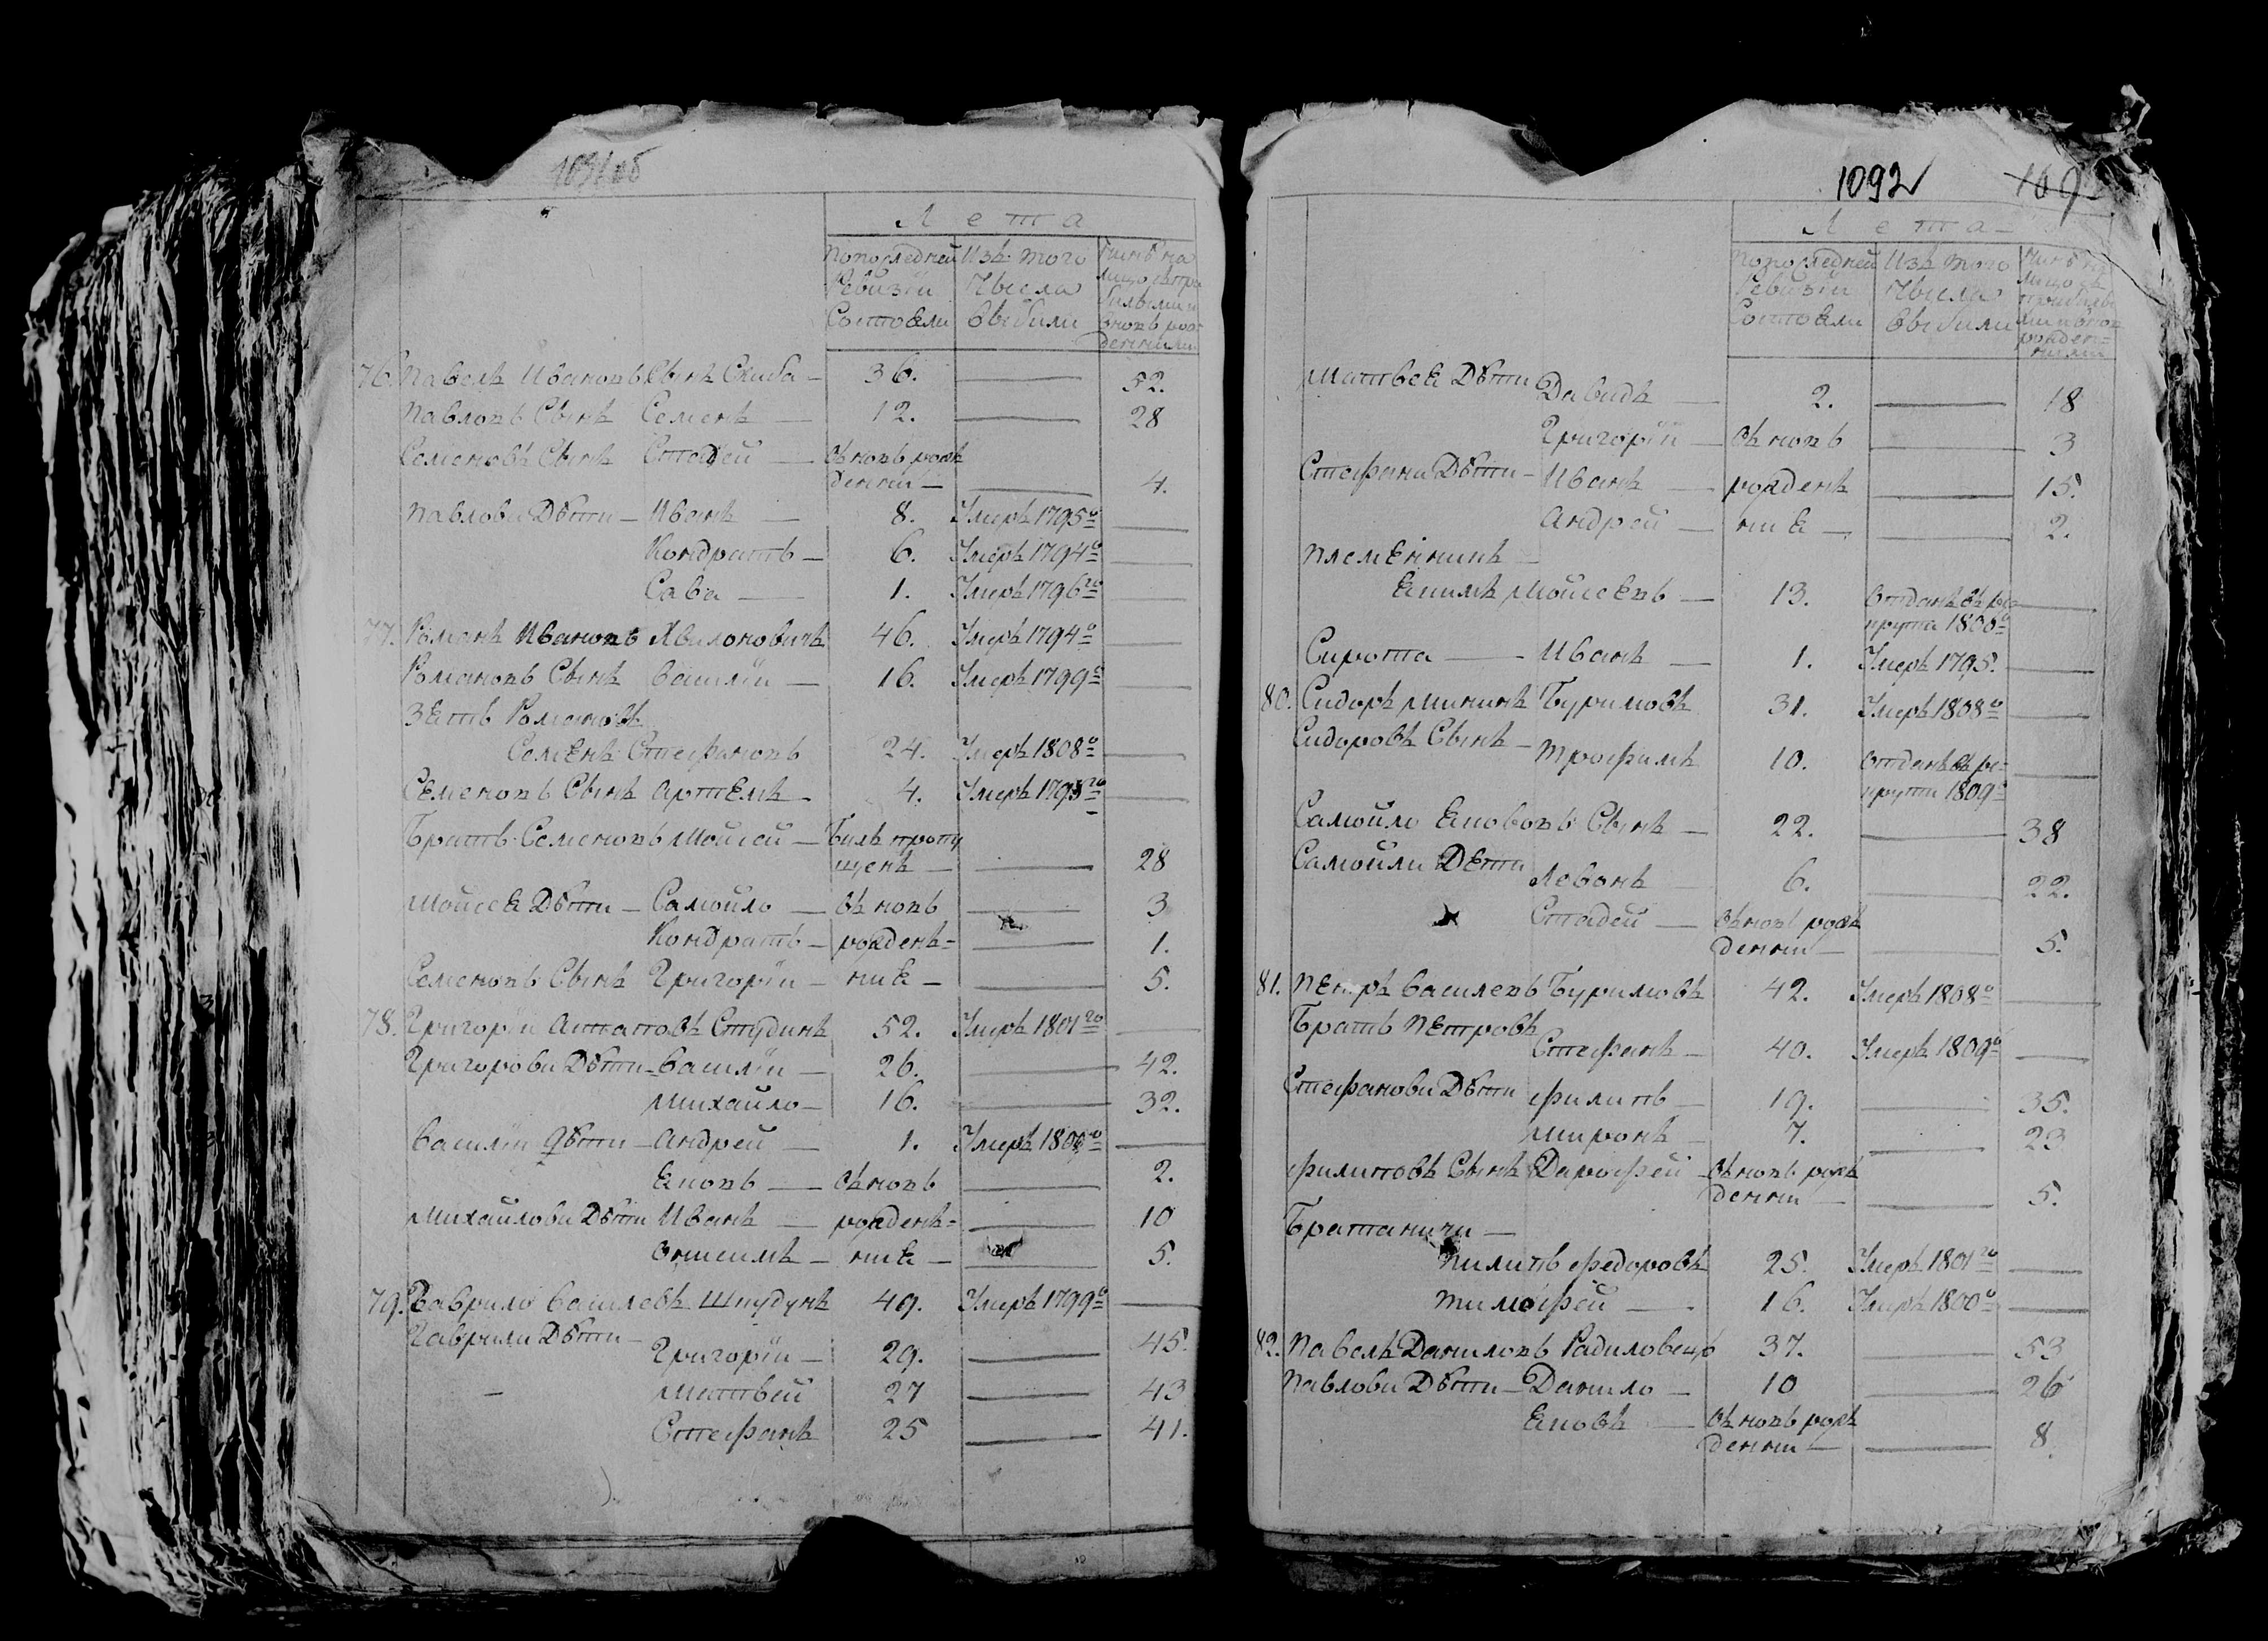 1091 об
Лета
По последней Изъ того Нинѣ на
Ревизїи Числа лицо съ при
Состояли выбили былыми и
вновь рож
денними
76. Павелъ Ивановъ Сынъ Скиба — 36. — 52.
Павловъ Сынъ Семенъ — 12. — 28
Семеновъ Сынъ Стадей — въ новь рож
денни — — 4.
Павлови Дѣти — Иванъ — 8. Умеръ 1795го —
Кондратъ — 6. Умеръ 1794го —
Сава — 1. Умеръ 1796го —
77. Романъ Ивановъ Хвилоновичъ 46. Умеръ 1794го —
Романовъ Сынъ Василїй — 16. Умеръ 1799го —
Зєть Романовъ
Семєнъ Стефановъ 24. Умеръ 1808го —
Сємєновъ Сынъ Артємъ — 4. Умеръ 1795го —
Братъ Семеновъ Мойсей — Билъ пропу
щенъ — — 28
Мойсєя Дѣти — Самойло — въ новь — 3
Кондратъ — рожденъ= — 1.
Семеновъ Сынъ Григорїй — ниє — — 5.
78. Григорїй Аптаповъ Студинъ 52. Умеръ 1801го —
Григорови Дѣти — Василїй — 26. — 42.
Михайло — 16. — 32.
Василїя Дѣти — Андрей — 1. Умеръ 1800го —
Яковъ — въ новь — 2.
Михайлови Дѣти Иванъ — рожденъ= — 10
Онисимъ — ниє — — 5.
79. Гаврило Василевъ Шпудунъ 49. Умеръ 1799го —
Гаврили Дѣти —
Григорїй — 29. — 45.
Матвей 27 — 43
Стефанъ 25 — 41.
1092
Лета
По последней Изъ того Нинѣ на
Ревизїи Числа лицо съ
Состояли выбили прибилы
ми и внов
рожден=
ними
Матвєя Дѣти Давидъ — 2. — 18
Григорїй — въ новь — 3
Стефана Дѣти — Иванъ — рожденъ — 15.
Андрей — ниє — — 2.
Племєнникъ —
Якимъ Мойсєєвъ — 13. Отданъ въ ре —
крути 1800го
Сирота — Иванъ — 1. Умеръ 1795. —
80. Сидоръ Мининъ Буримовъ 31. Умеръ 1808го —
Сидоровъ Сынъ — Трофимъ 10. Отданъ въ ре= —
крути 1809го
Самойло Якововъ Сынъ — 22. — 38
Самойли Дєти
Левонъ — 6. — 22.
Стадей — въ новь рож
денни — — 5.
81. Пєтръ Василевъ Буримовъ 42. Умеръ 1808го —
Братъ Пєтровъ
Стефанъ — 40. Умеръ 1809го —
Стефанови Дѣти Филипъ — 19. — 35.
Миронъ — 7. — 23
Филиповъ Сынъ Дарофей — въ новь рож
денни — — 5.
Братаничи —
Пилипъ Федоровъ 25. Умеръ 1801го —
Тимофей — 16. Умеръ 1800го —
82. Павелъ Даниловъ Радиловецъ 37. — 53
Павлови Дѣти — Данило — 10 — 26
Яковъ — въ новь рож
денни — — 8.